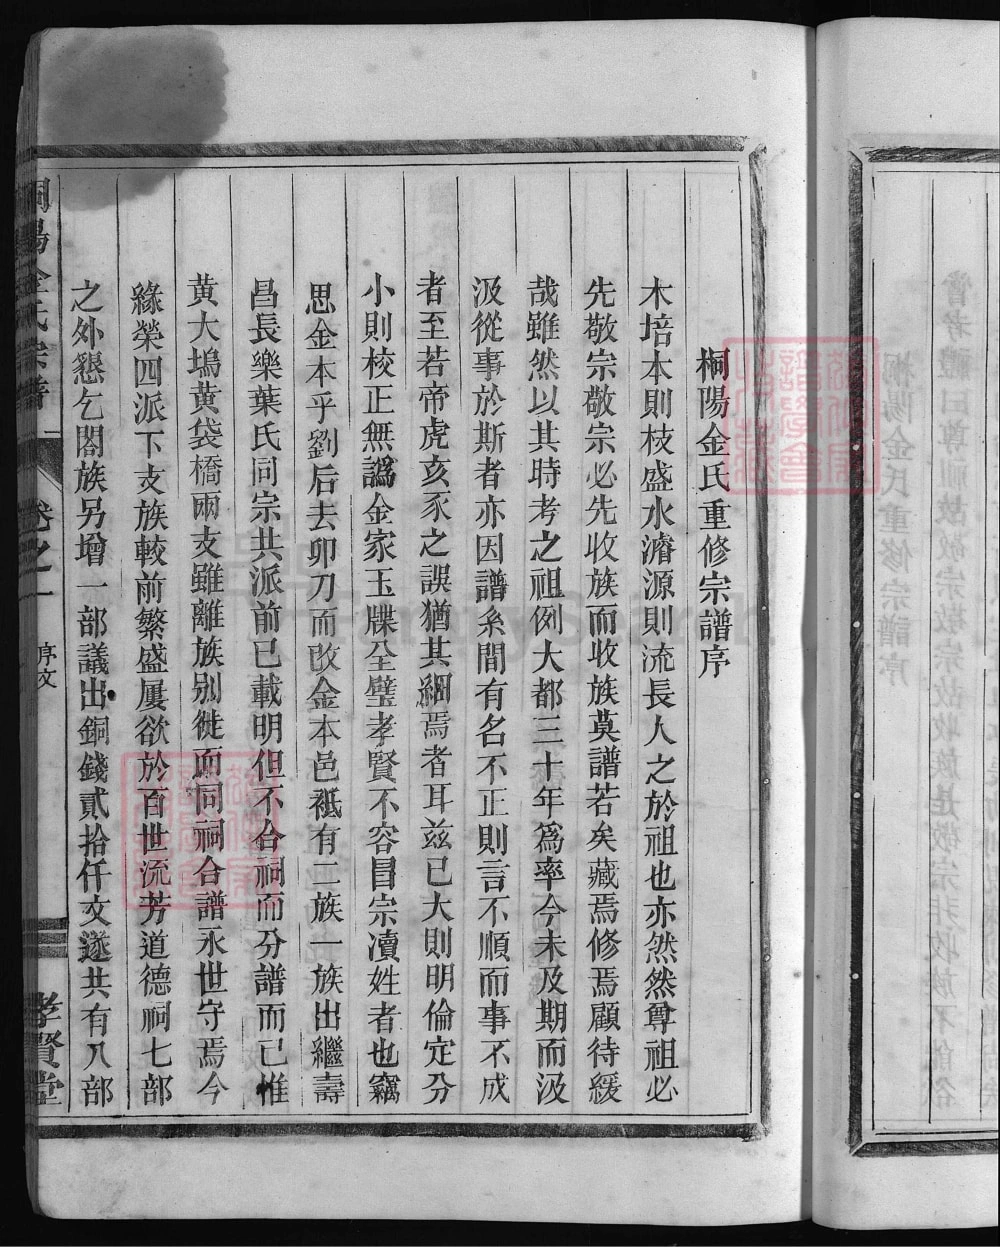 桐陽金氏重修宗譜序
木培本則枝盛水濬源則流長人之於祖也亦然然尊祖必
先敬宗敬宗必先收族而收族莫譜若矣藏焉修焉顧待緩
哉雖然以其時考之祖例大都三十年爲率今未及期而汲
汲從事於斯者亦因譜系間有名不正則言不順而事不成
者至若帝虎亥豕之誤猶其細焉者耳茲已大則明倫定分
小則校正無譌金家玉牒全璧孝賢不容冒宗瀆姓者也竊
思金本乎劉后去卯刀而改金本邑祗有二族一族出繼壽
昌長樂葉氏同宗共派前已載明但不合祠而分譜而已惟
黃大塢黃袋橋兩支雖離族別徙而同祠合譜永世守焉今
緣榮四派下支族較前繁盛屢欲於百世流芳道德祠七部
之外懇乞閤族另增一部議出銅錢貳拾仟文遂共有八部
桐陽金氏宗譜 卷之一 序文 孝賢堂